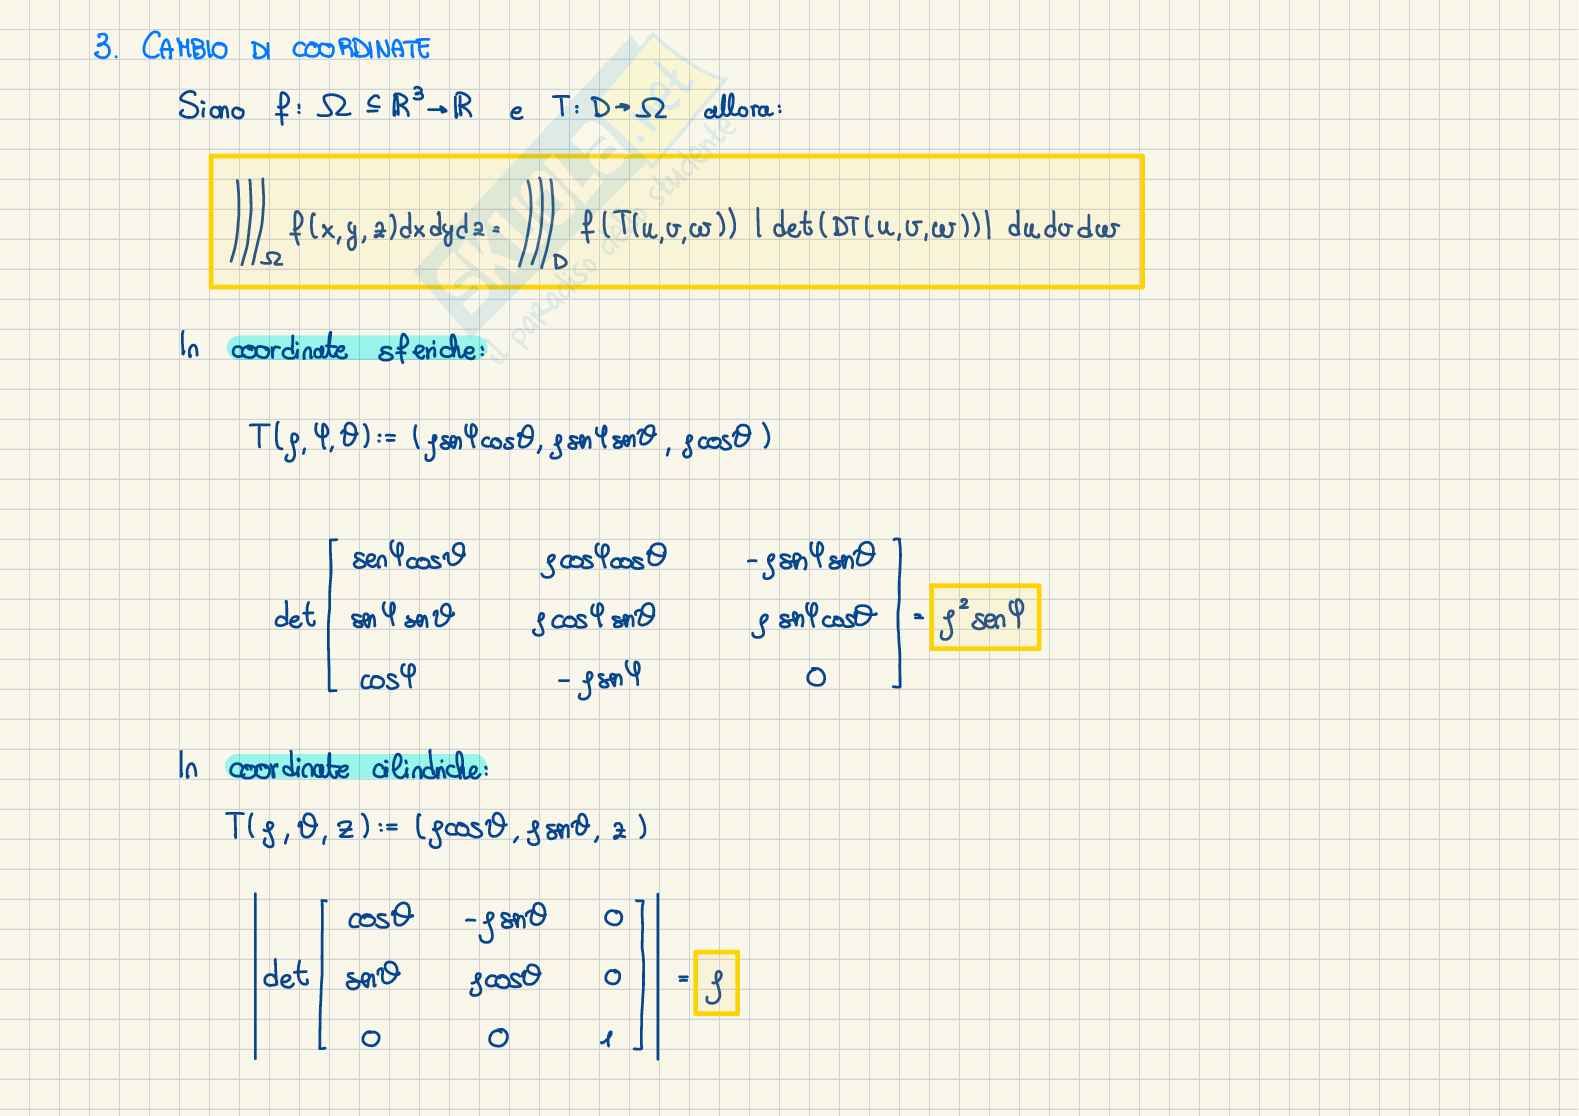 3. CAMBIO DI COORDINATE
Siano f: Ω ⊆ ℝ³ → ℝ e T: D → Ω allora:
∭_Ω f(x,y,z)dxdydz = ∭_D f(T(u,v,w)) |det(DT(u,v,w))| du dv dw
In coordinate sferiche:
T(ρ,φ,θ):= (ρsenφcosθ, ρsenφsenθ, ρcosθ)
senφcosθ ρcosφcosθ -ρsenφsenθ
det senφsenθ ρcosφsenθ ρsenφcosθ = ρ²senφ
cosφ -ρsenφ 0
In coordinate cilindriche:
T(ρ,θ,z):= (ρcosθ, ρsenθ, z)
cosθ -ρsenθ 0
det senθ ρcosθ 0 = ρ
0 0 1
SKUOLA.net
il paradiso dello studente